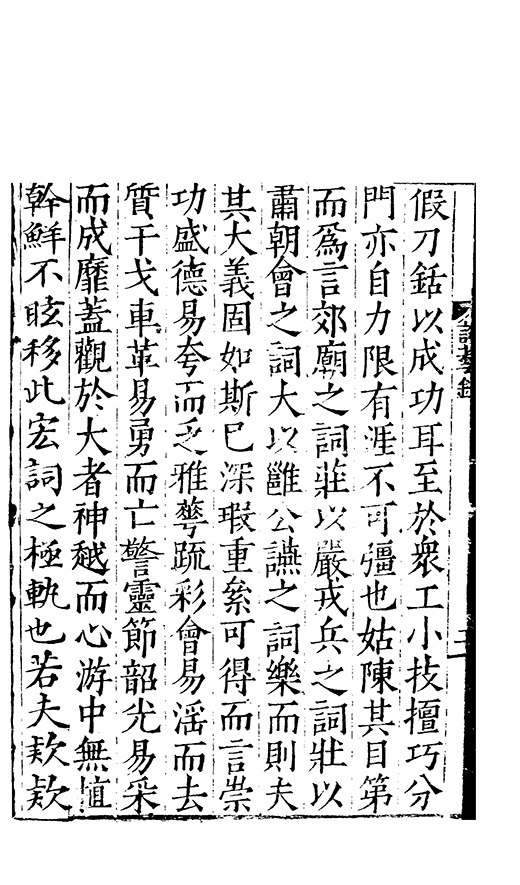 假刀銛以成功耳至於衆工小技擅巧分
門亦自力限有涯不可彊也姑陳其目第
而爲言郊廟之詞莊以嚴戎兵之詞壯以
肅朝會之詞大以雝公讌之詞樂而則夫
其大義固如斯已深瑕重絫可得而言崇
功盛德易夸而乏雅華疏彩會易淫而去
質干戈車革易勇而亡警靈節韶光易采
而成靡蓋觀於大者神越而心游中無植
幹鮮不眩移此宏詞之極軌也若夫款款
談藝錄